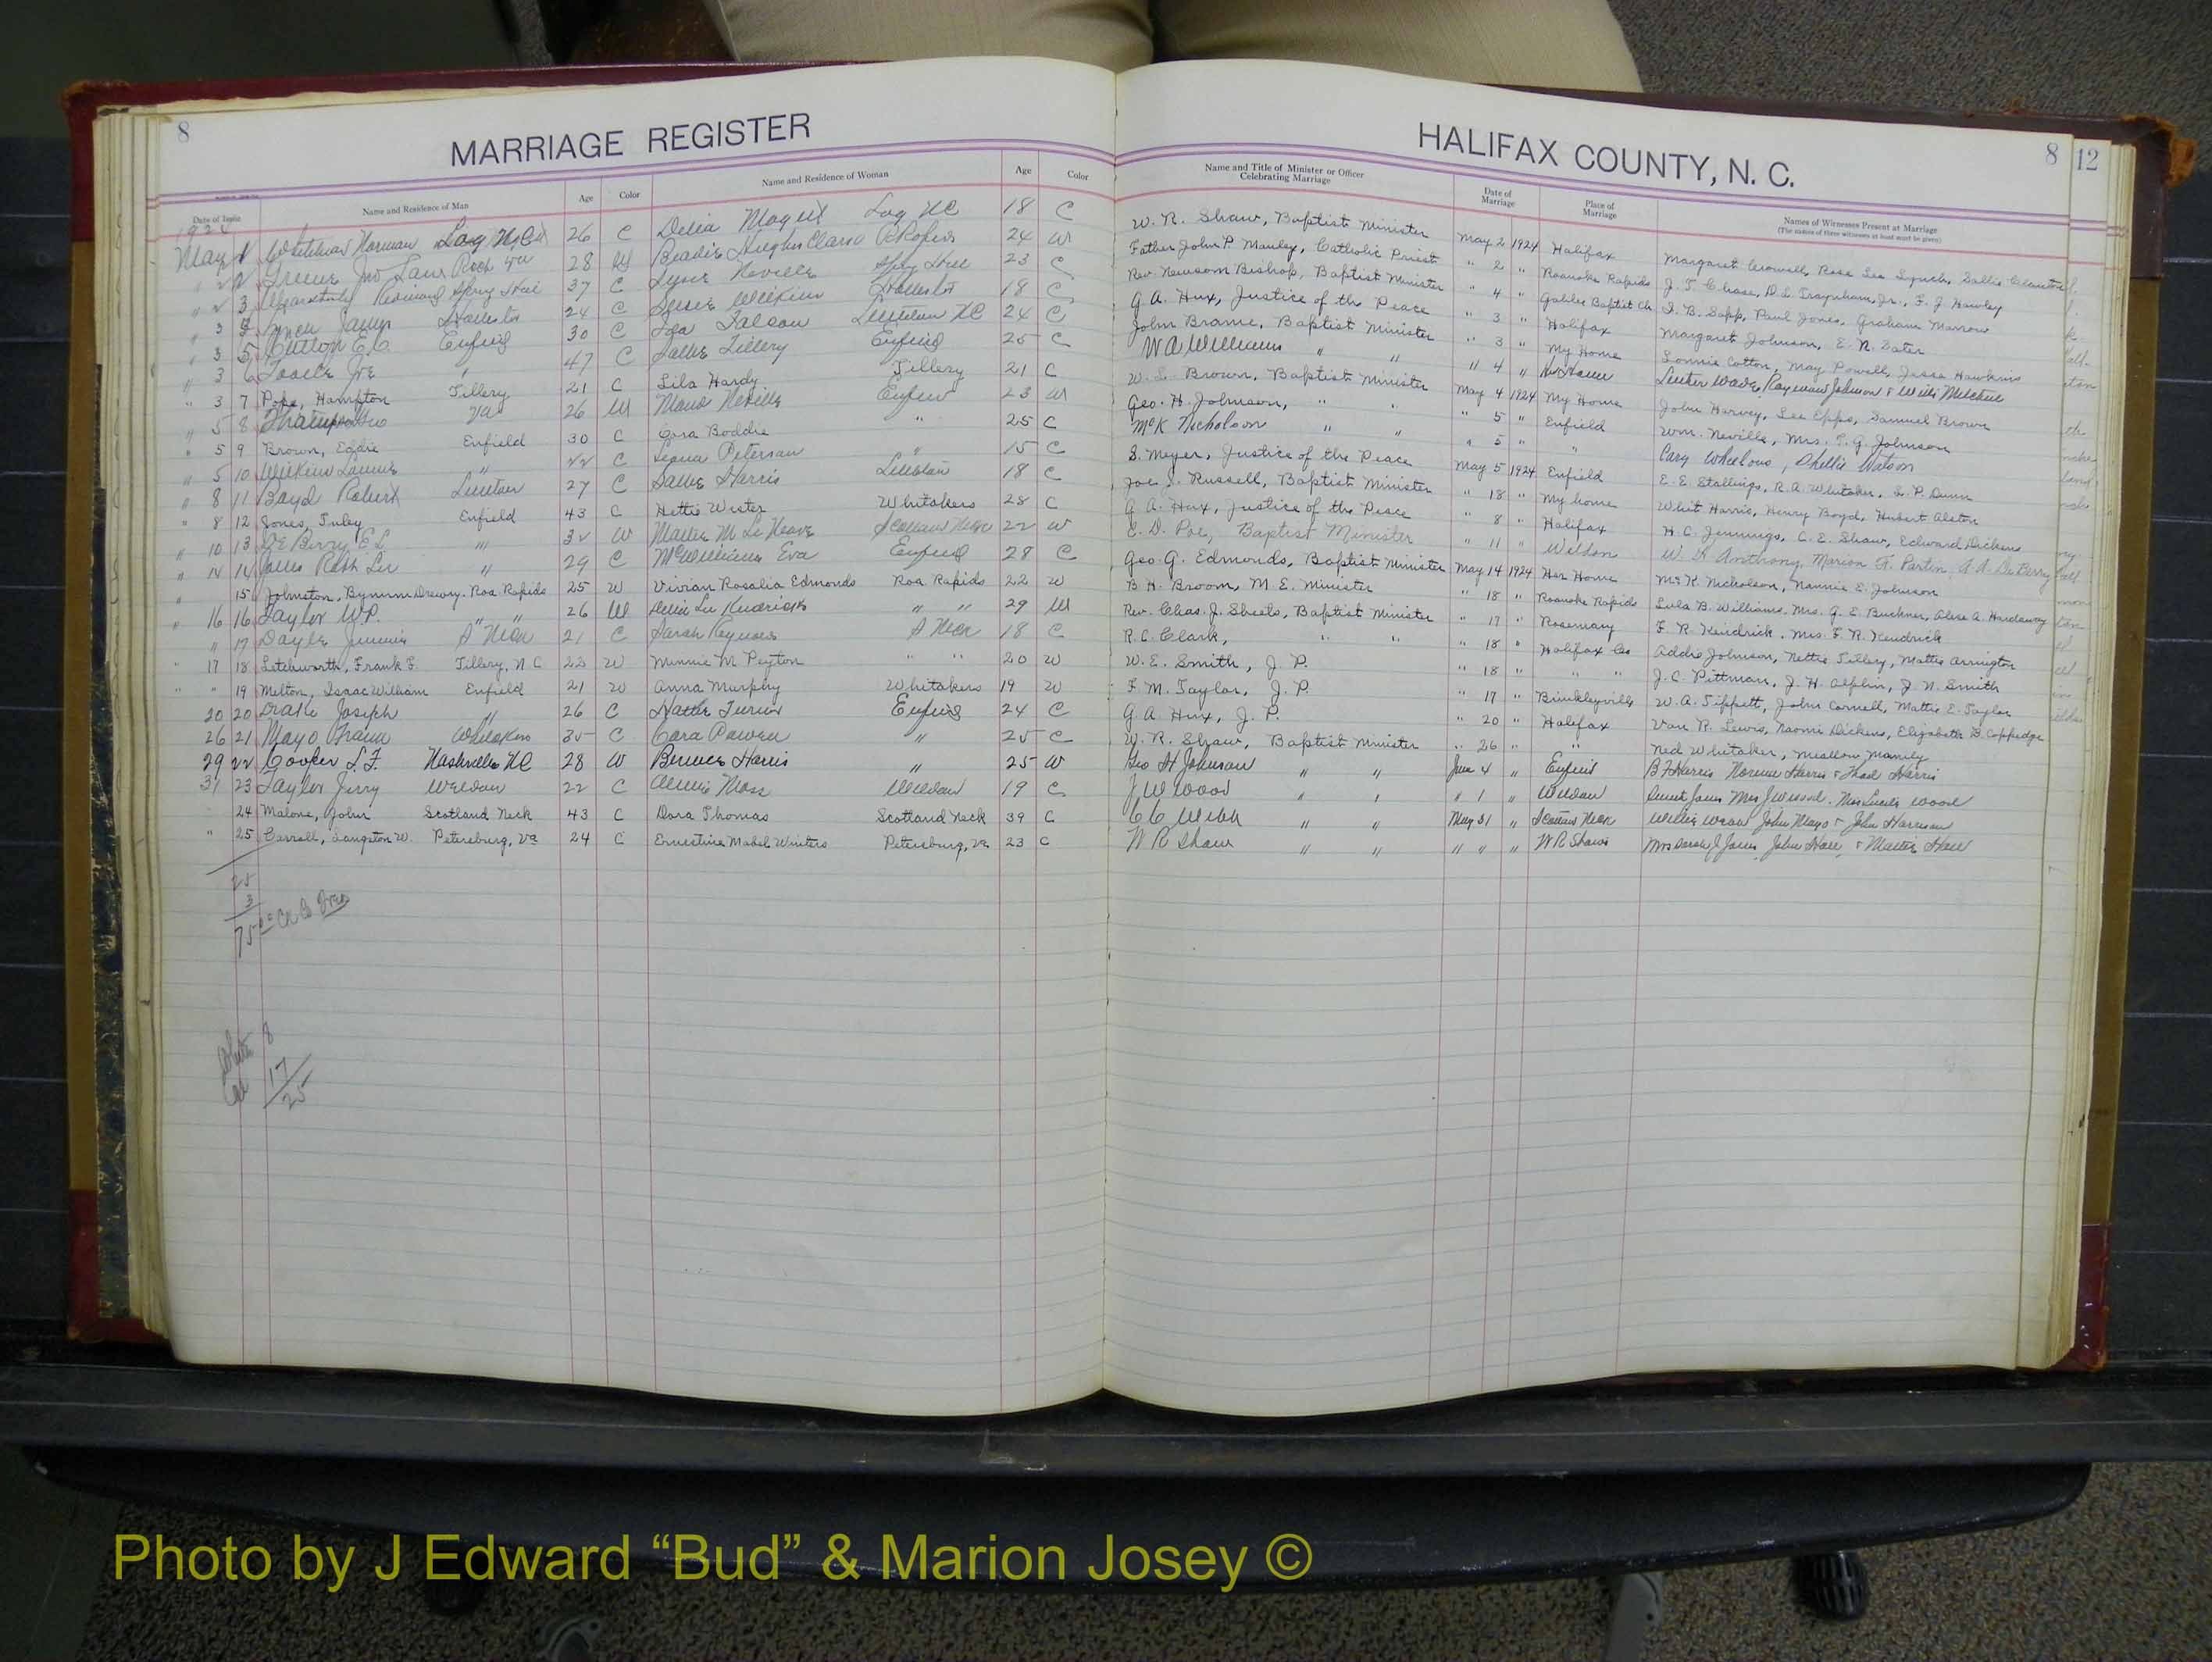 8
MARRIAGE REGISTER
Date of Issue Name and Residence of Man Age Color Name and Residence of Woman Age Color
1924
May 1 1 Whitehead Norman 26 C Delia 18 C
2 2 Greene Jno 28 W Hughes 24 W
2 3 37 C Neville 23 C
3 4 James 24 C Susie Wilkins 18 C
3 5 E.C. Enfield 30 C Ida Littleton NC 24 C
3 6 47 C Sallie Tillery Enfield 25 C
" 3 7 Pope, Hampton Tillery 21 C Lila Hardy Tillery 21 C
" 5 8 Va 26 W Maud Neville Enfield 23 W
" 5 9 Brown, Eddie Enfield 30 C Cora Boddie " 25 C
" 5 10 " 22 C Peterson " 15 C
" 8 11 Boyd Robert 27 C Sallie Harris 18 C
" 8 12 Jones, Finley Enfield 43 C Hettie Wester Whitakers 28 C
" 10 13 De Berry E L " 32 W Mattie M Scotland Neck 22 W
" 14 14 " 29 C McWilliams Eva Enfield 28 C
" 15 Johnston, Bynum Drewry. Roa. Rapids 25 W Vivian Rosalia Edmonds Roa Rapids 22 W
" 16 16 Taylor W.P. " " 26 W Kendrick " " 29 W
" 17 Jimmie S Neck 21 C Sarah S Neck 18 C
" 17 18 Letchworth, Frank F. Tillery, N.C 22 W Minnie M Peyton " " 20 W
" " 19 Melton, Isaac William Enfield 21 W Anna Murphy Whitakers 19 W
20 20 Drake Joseph " 26 C Hattie Turner Enfield 24 C
26 21 Mayo Whitakers 35 C Cora " 25 C
29 22 Cooper L.F. Nashville NC 28 W Bernice Harris " 25 W
31 23 Taylor Jerry Weldon 22 C Annie Moss Weldon 19 C
24 Malone, John Scotland Neck 43 C Dora Thomas Scotland Neck 39 C
" 25 Carroll, Langston W. Petersburg, Va 24 C Ernestine Mabel Winters Petersburg, Va. 23 C
25
3
75
White 8
Col 17
25
HALIFAX COUNTY, N. C.
8
12
Name and Title of Minister or Officer Celebrating Marriage Date of Marriage Place of Marriage Names of Witnesses Present at Marriage
(The names of three witnesses at least must be given)
W. R. Shaw, Baptist Minister May 2 1924 Halifax Margaret Crowell, Rosa Lee Lynch, Sallie
Father John P. Manley, Catholic Priest " 2 " Roanoke Rapids J. T. Chase, D.L. Traynham, Jr., F. J. Hawley
Rev. Newsom Bishop, Baptist Minister " 4 " Galilee Baptist Ch. I. B. Sapp, Paul Jones, Graham Marrow
G. A. Hux, Justice of the Peace " 3 " Halifax Margaret Johnson, E. N. Dater
John Brame, Baptist Minister " 3 " My Home Lonnie Cotton, May Powell, Jesse Hawkins
W A Williams " " " 4 " Luther Wade, Raymond Johnson & Willis
W. L. Brown, Baptist Minister May 4 1924 My Home John Harvey, Lee Epps, Samuel Brown
Geo. H. Johnson, " " " 5 " Enfield Wm. Neville, Mrs. P. G. Johnson
McK Nicholson " " " 5 " " Cary Wheelous, Shellie Watson
S. Meyer, Justice of the Peace May 5 1924 Enfield E. E. Stallings, R. A. Whitaker, S. P. Dunn
Joe J. Russell, Baptist Minister " 18 " My home Whit Harris, Henry Boyd, Hubert Alston
G. A. Hux, Justice of the Peace " 8 " Halifax H. C. Jennings, C. E. Shaw, Edward Dickens
E. D. Poe, Baptist Minister " 11 " Weldon W. Anthony, Marion F. Partin, A. A. DeBerry
Geo G. Edmonds, Baptist Minister May 14 1924 Her Home McK. Nicholson, Nannie E. Johnson
B H. Broom, M. E. Minister " 18 " Roanoke Rapids Lula B. Williams, Mrs. G. E. Buckner, Alese A. Hardaway
Rev. Chas. J. Sheets, Baptist Minister " 17 " Rosemary F. R. Kendrick, Mrs. F. R. Kendrick
R. C. Clark, " " " 18 " Halifax Co Addie Johnson, Nettie Tillery, Mattie Arrington
W. E. Smith, J. P. " 18 " " " J. C. Pittman, J. H. Alphin, J. N. Smith
F. M. Taylor, J. P. " 17 " Brinkleyville W. A. Tippett, John Cornell, Mattie E. Taylor
G. A. Hux, J. P. " 20 " Halifax Van R. Lewis, Naomi Dickens, Elizabeth B. Coppedge
W. R. Shaw, Baptist Minister " 26 " " Ned Whitaker, Meallow Manily
Geo H Johnson " " June 4 " Enfield B F Harris Norene Harris & Thad Harris
J W Wood " " " 1 " Weldon Mrs J W Wood. Wood
C C Webb " " May 31 " Scotland Neck Willie John Mayo & John Harrison
W R Shaw " " " " " W R Shaws Mrs Sarah J Jones, John Hall, & Mattie Hall
Photo by J Edward “Bud” & Marion Josey ©